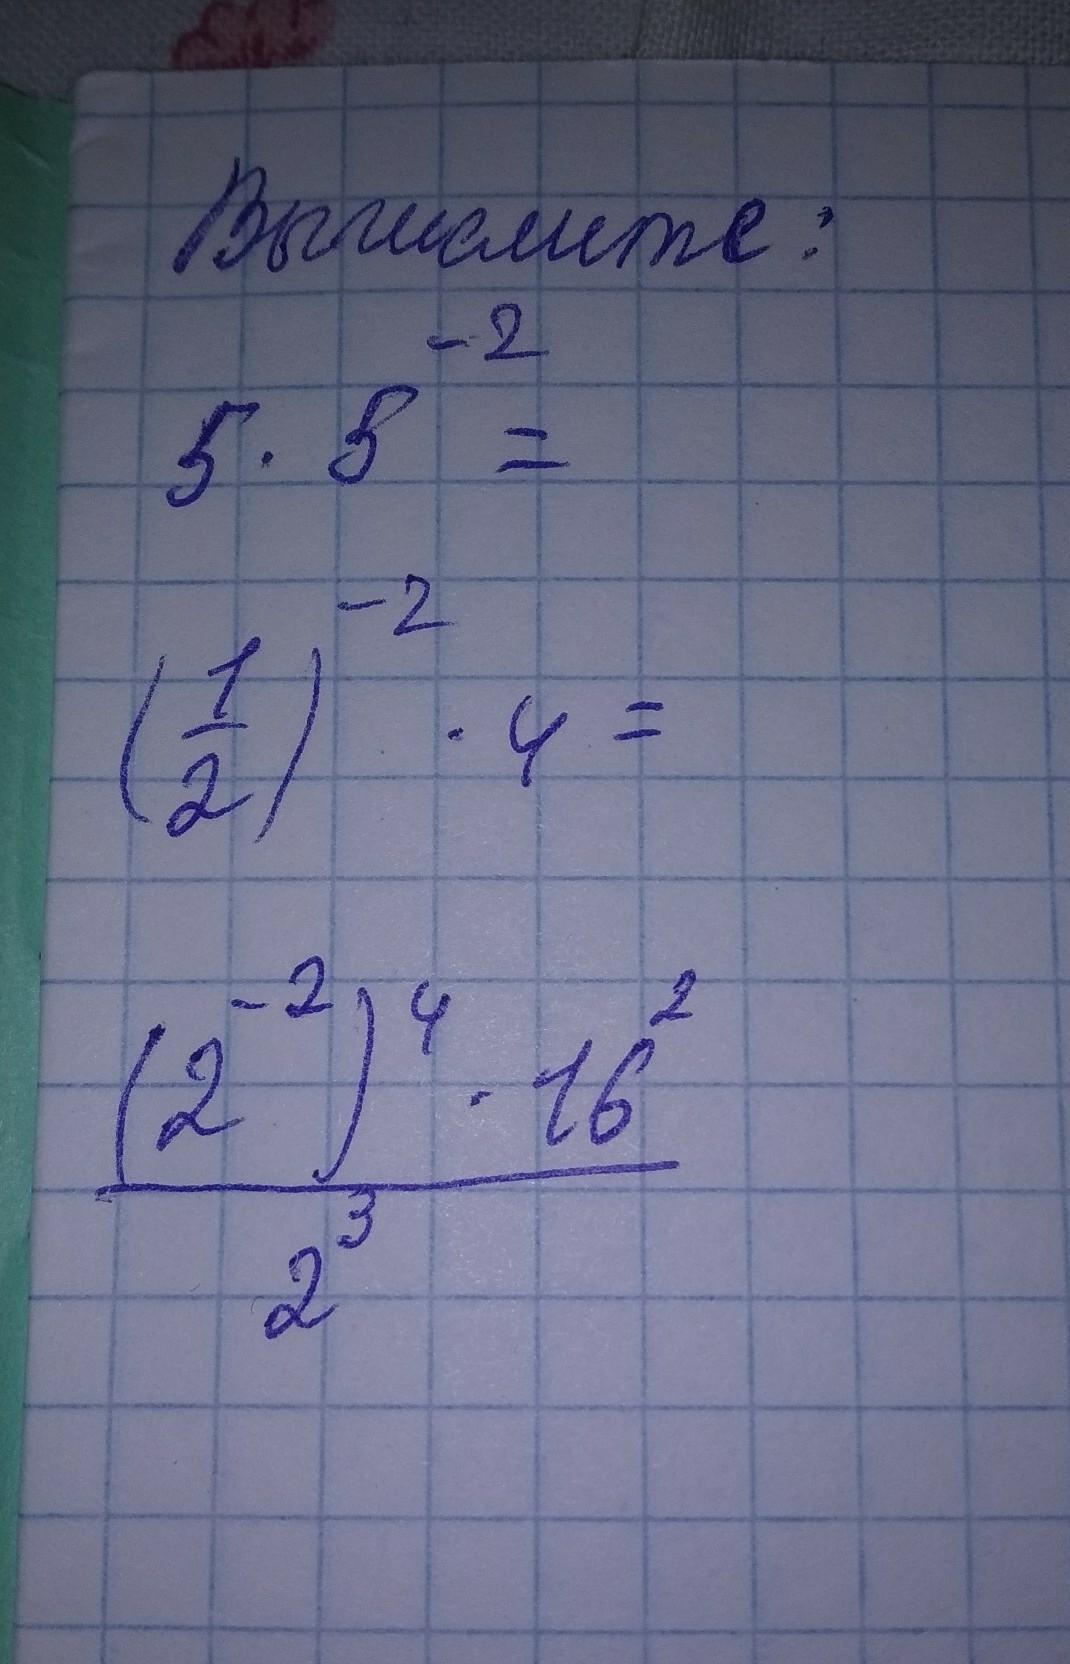 Вычислите:
5 · 5^-2 =
(1/2)^-2 · 4 =
((2^-2)^4 · 16^2)/2^3